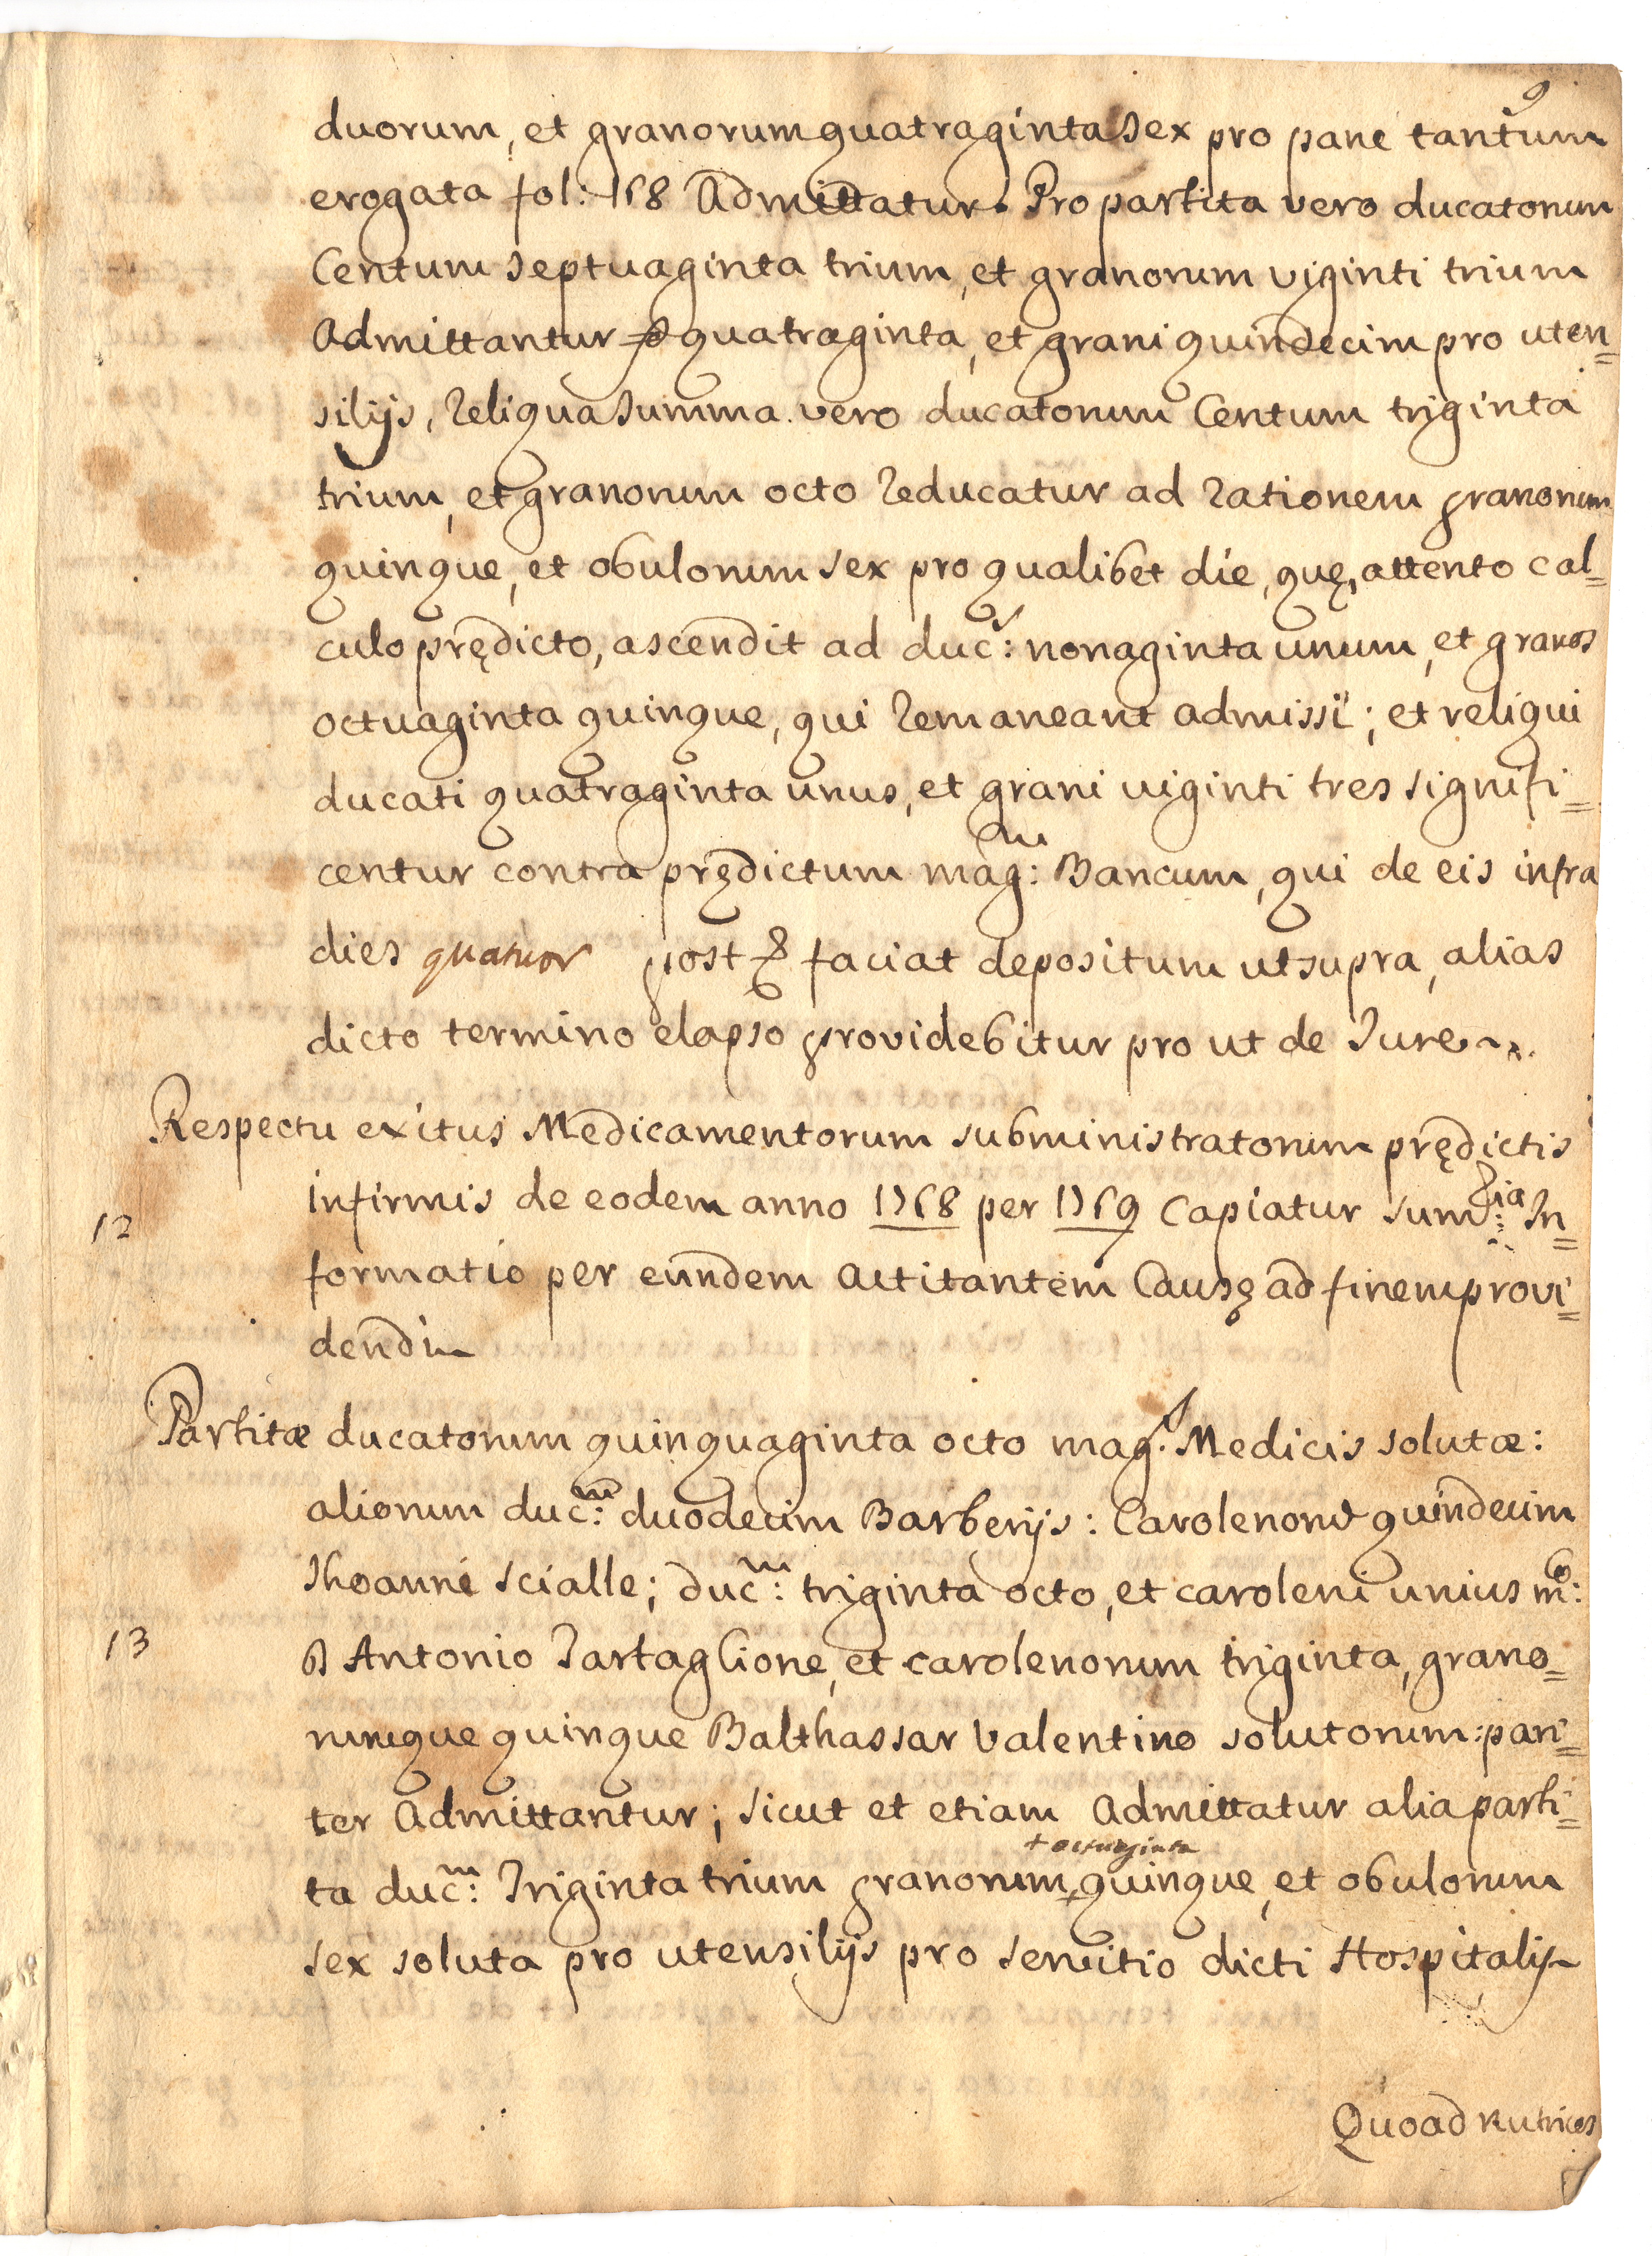 9
duorum, et granorum quatraginta sex pro pane tantum
erogata fol: 168 Admittatur. Pro partita vero ducatorum
Centum septuaginta trium, et granorum viginti trium
Admittantur quatraginta, et grani quindecim pro uten=
silijs, Reliqua summa vero ducatorum Centum triginta
trium, et granorum octo Reducatur ad Rationem granorum
quinque, et obulorum sex pro qualibet die, quę, attento cal=
culo prędicto, ascendit ad duc:s nonaginta unum, et granos
octuaginta quinque, qui Remaneant admissi; et reliqui
ducati quatraginta unus, et grani viginti tres signifi=
centur contra prędictum mag:cum Bancum, qui de eis infra
dies quatuor post faciat depositum ut supra, alias
dicto termino elapso providebitur pro ut de Jure
Respectu exitus Medicamentorum subministratorum prędictis
12
infirmis de eodem anno 1768 per 1769 Capiatur sum:ia In=
formatio per eundem Actitantem Causę ad finem provi=
dendi
Partitæ ducatorum quinquaginta octo mag:s Medicis solutæ:
aliorum duc:m duodecim Barberijs: Carolenorum quindecim
Jhoanne Scialle; duc:m triginta octo, et caroleni unius m:o
13
D Antonio Tartaglione, et carolenorum triginta, grano=
rumque quinque Balthassar Valentino solutorum: pari=
ter Admittantur; sicut et etiam Admittatur alia parti=
+ octuaginta
ta duc:m Triginta trium granorum + quinque, et obulorum
sex soluta pro utensilijs pro servitio dicti Hospitalis
Quoad Nutrices